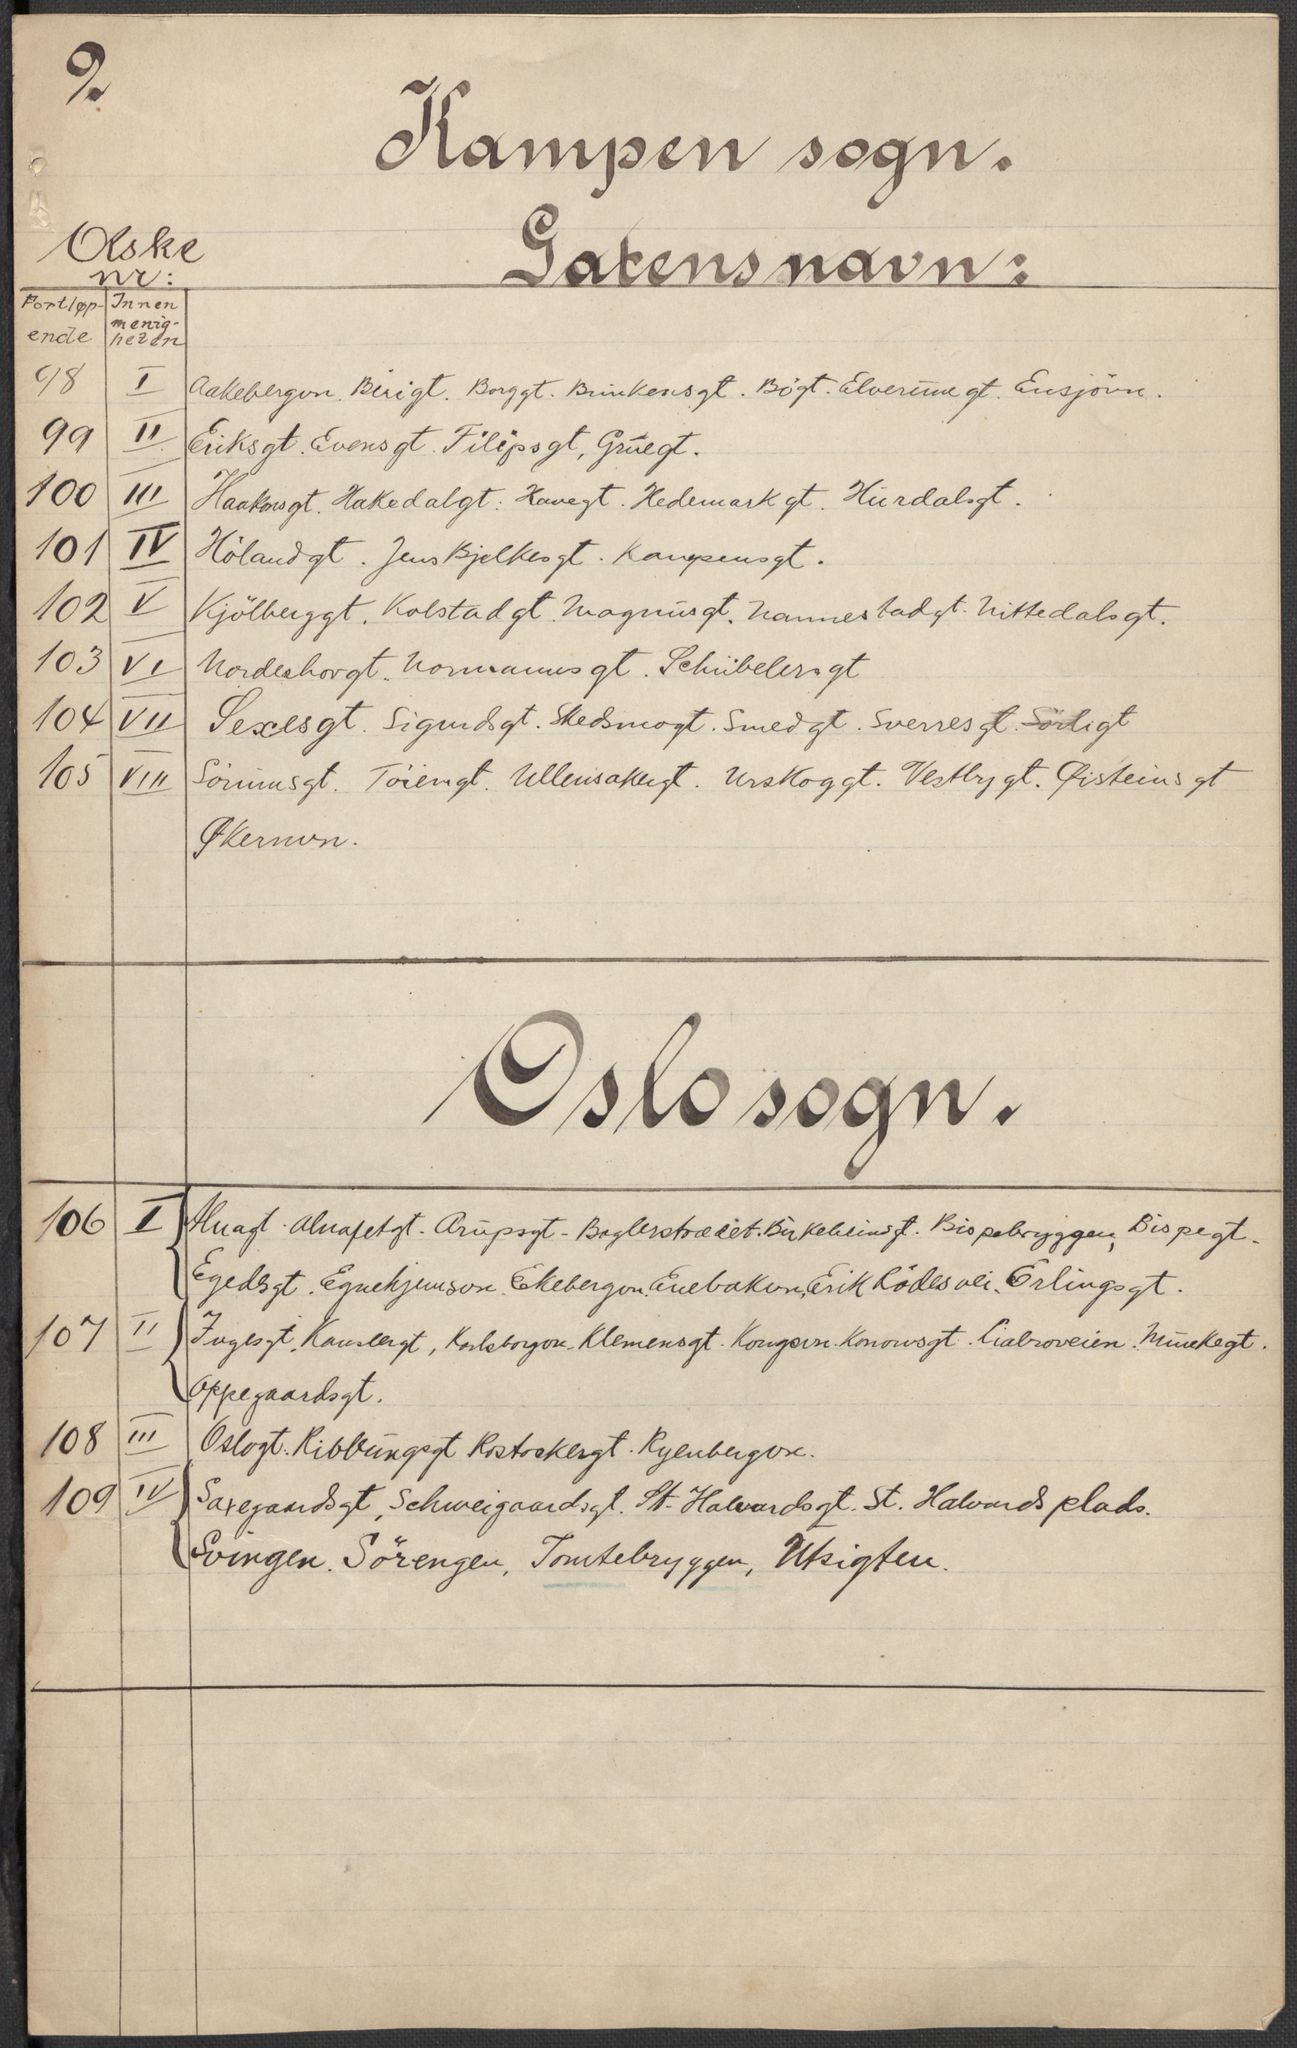 9.
Kampen sogn.
Gatens navn:
Æske
nr:
Fortløp-
ende
Innen
menig-
heten
98 I Aakebergvn. Birigt. Borggt. Brinkensgt. Bögt. Elverumgt. Ensjövn.
99 II Eriksgt. Evensgt. Filipsgt, Grüegt.
100 III Haakonsgt. Hakedalgt. Havegt. Hedemarkgt. Hurdalsgt.
101 IV Hölandgt. Jens Bjelkesgt. Kampensgt.
102 V Kjölberggt. Kolstadgt. Magnusgt. Nannestadgt. Nittedalsgt.
103 VI Nordeshovgt. Normannsgt. Schübelersgt
104 VII Sexesgt. Sigurdsgt. Skedsmogt. Smedgt. Sverresgt. Sörligt
105 VIII Sörumsgt. Töiengt. Ullensakergt. Urskoggt. Vestbygt. Øisteinsgt
Økernvn.
Oslo sogn.
106 I Alnagt. Alnafetgt. Arupsgt. Baglerstrædet. Birkebeinsgt. Bispebryggen, Bispegt.
Egedesgt. Egnehjemsvn. Ekebergvn, Enebakvn, Erik Lödes vei. Erlingsgt.
107 II Ingesgt, Kanslergt, Karlsborgvn. Klemensgt. Kongsvn. Konowsgt. Liabroveien. Munkegt.
Oppegaardsgt.
108 III Oslogt. Ribbungsgt Rostockergt. Ryenbergvn.
109 IV Saxegaardsgt, Schweigaardsgt. St. Halvardsgt. St. Halvards plads.
Svingen. Sörengen, Tomtebryggen, Utsigten.